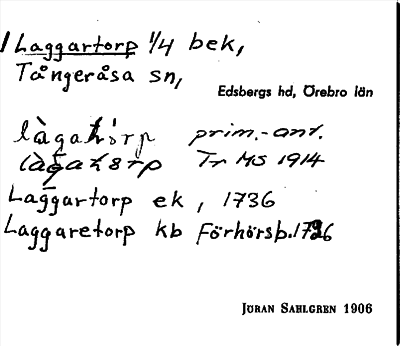 / Laggartorp 1/4 bek,
Tångeråsa sn,
Edsbergs hd, Örebro län
prim.-ant.
Tr MS 1914
Laggartorp ek, 1736
Laggaretorp kb Förhörsb.
JÖRAN SAHLGREN 1906